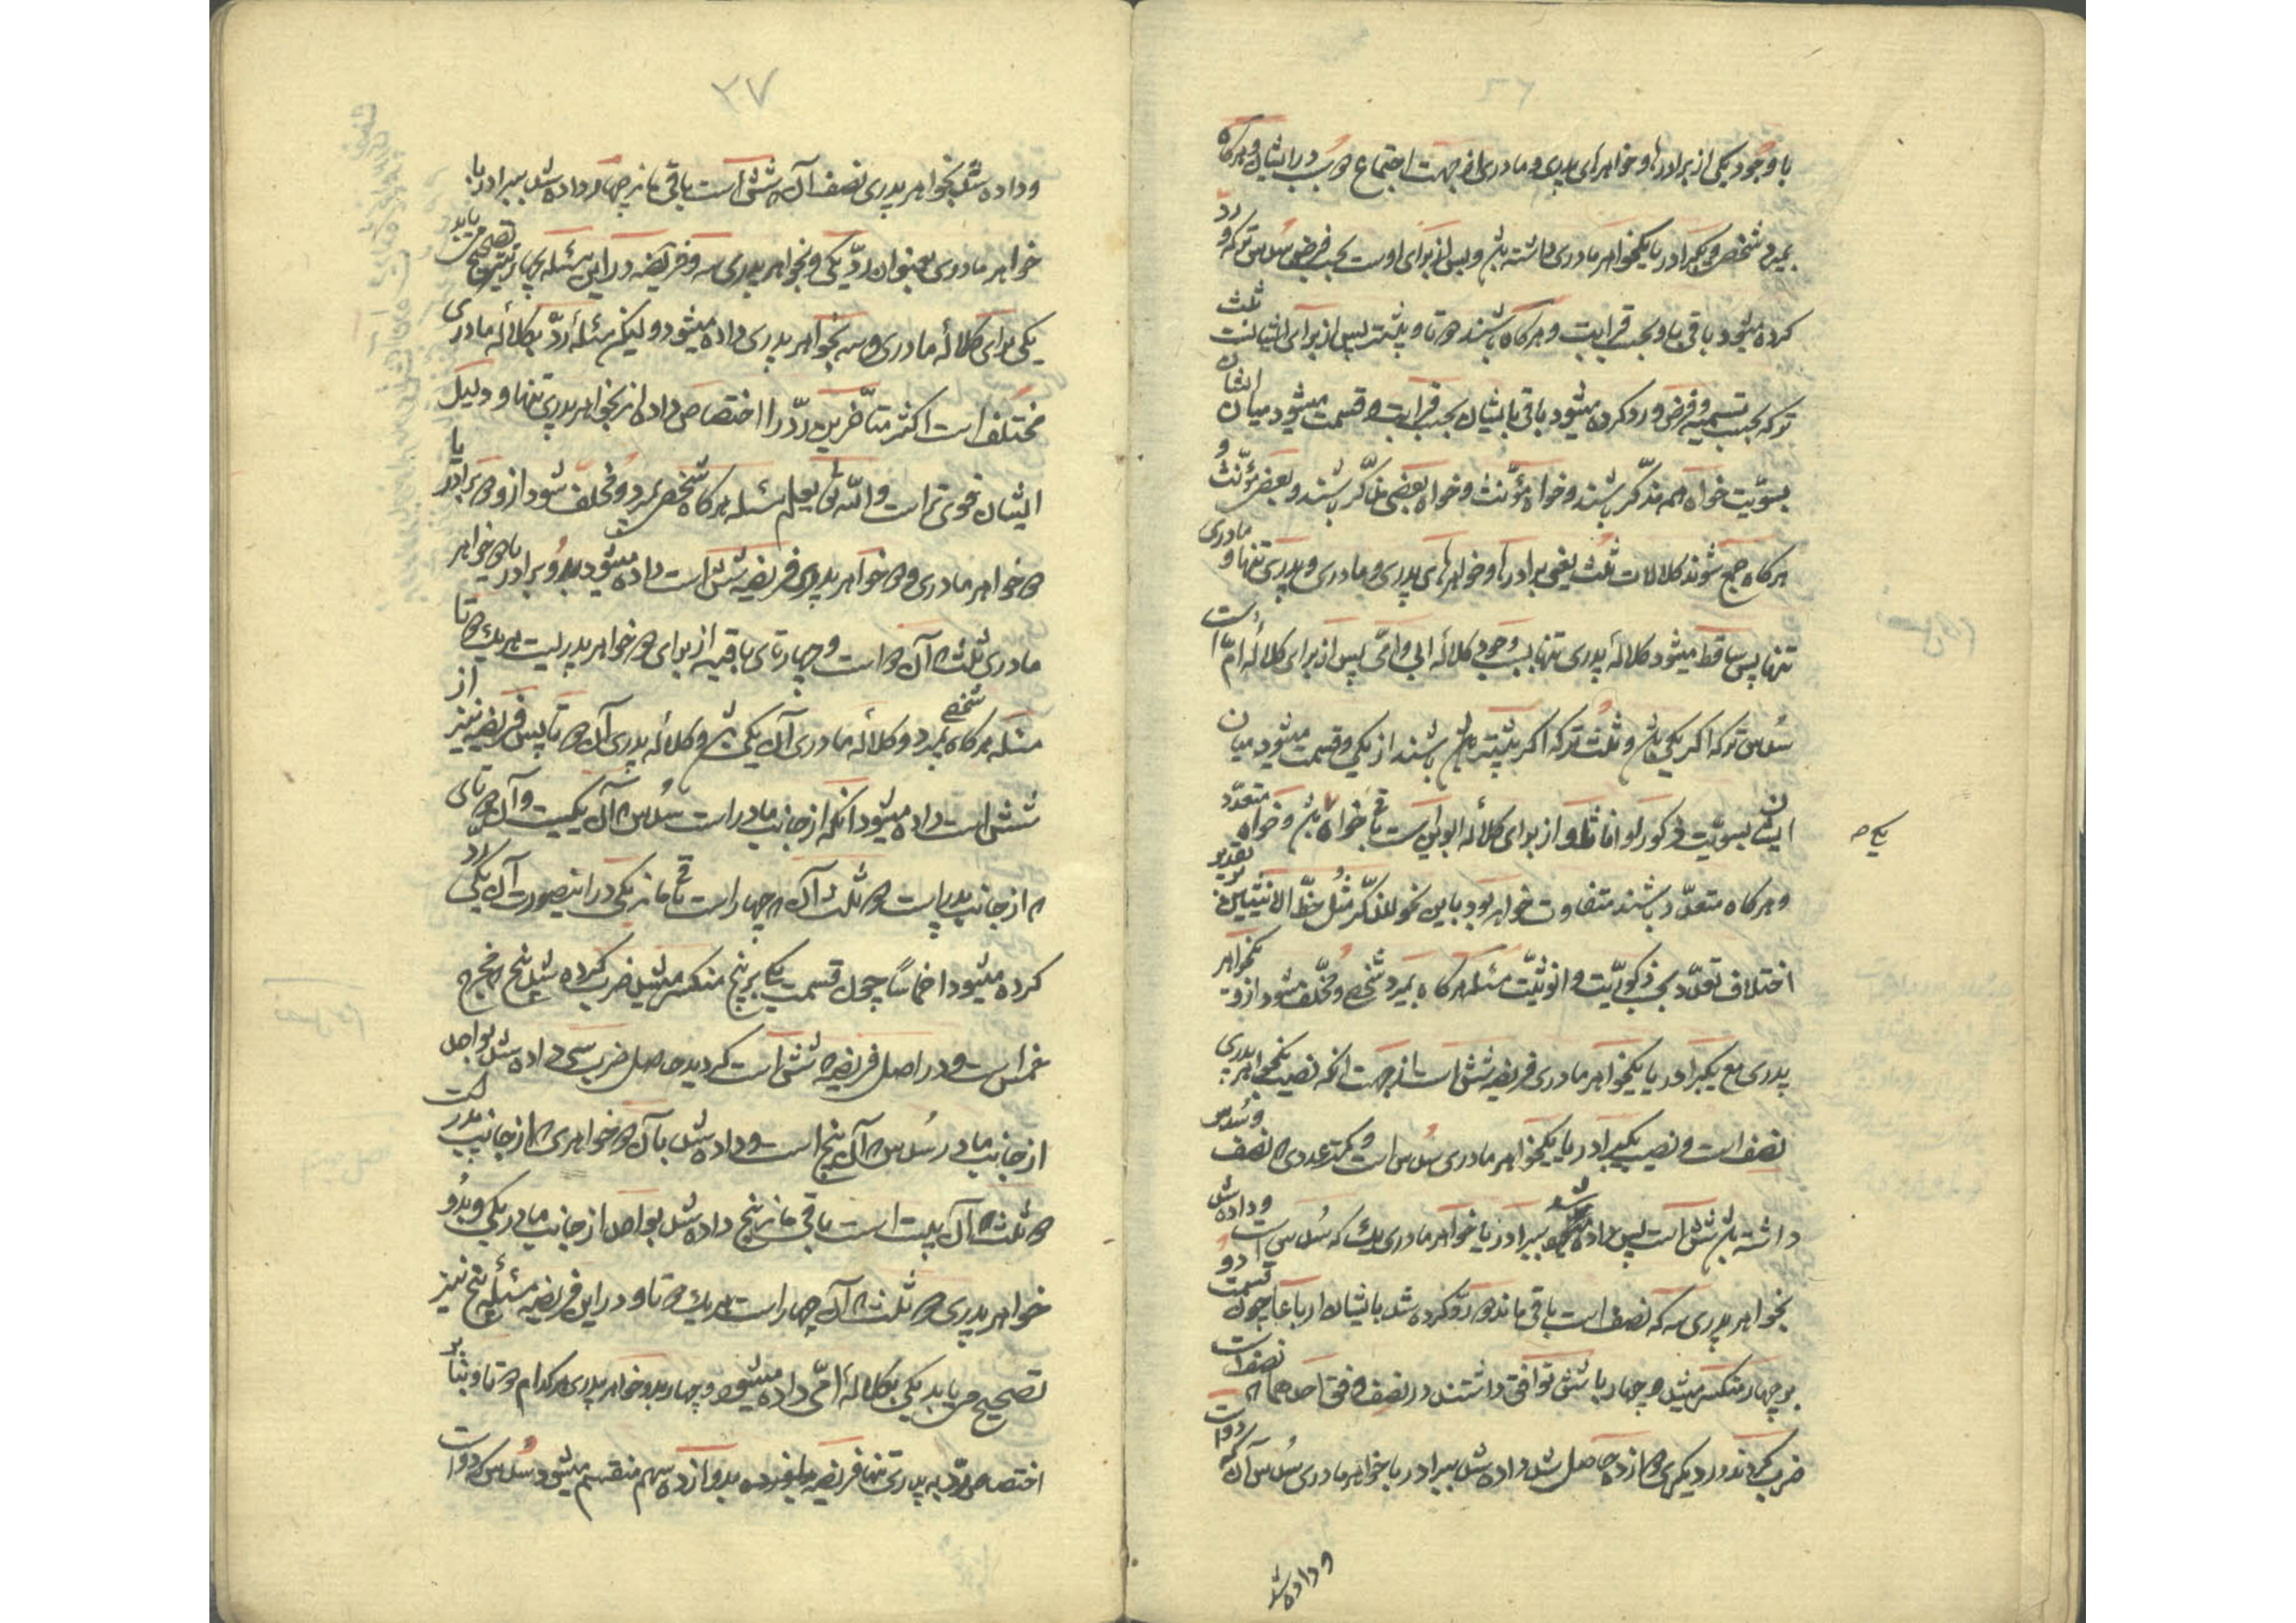 ۳۶
با وجود یکی از برادرها و خواهرهای پدری و مادری از جهت اجتماع دو سبب در ایشان و هرکاه
بمیرد شخصی و یکبرادر یا یکخواهر مادری داشته باشد پس از برای اوست بحسب فرض سدس ترکه و رد
کرده میشود باقی باو بحسب قرابت و هرکاه باشند دو تا و بیشتر پس از برای ایشانست ثلث
ترکه بحسب تسمیه و فرض و رد کرده میشود باقی بایشان بحسب قرابت و قسمت میشود میان ایشان
بسویّت خواه همه مذکّر باشند و خواه مؤنّث و خواه بعضی مذکّر باشند و بعضی مؤنّث و
هرکاه جمع شوند کلالات ثلث یعنی برادرها و خواهرهای پدری و مادری و پدری تنها و مادری
تنها پس ساقط میشود کلالهٔ پدری تنها بسبب وجود کلالهٔ ابی و امّی پس از برای کلالهٔ امّ است
سدس ترکه اکر یکی باشد و ثلث ترکه اکر بیشتر باشند از یکی و قسمت میشود میان
ایشان بسویّت ذکورا و اناثا و از برای کلالهٔ ابوین است باقی خواه یکی باشد و خواه متعدّد
یکی صح
و هرکاه متعدّد باشند متفاوت خواهد بود باین نحو للذکر مثل حظّ الانثیین بر تقدیر
اختلاف تعدّد بحسب ذکوریّت و انوثیّت مسئله هرکاه بمیرد شخصی و مخلّف شود از و یکخواهر
پدری مع یکبرادر یا یکخواهر مادری فریضه شش است از جهت انکه نصیب یکخواهر پدری
نصف است و نصیب یکبرادر یا یکخواهر مادری سدس است و کمتر عددی که نصف و سدس
داشته باشد شش است پس داده شد ببرادر یا خواهر مادری یک که سدس است و داده شد
بخواهر پدری سه که نصف است باقی ماند دو رد کرده شد بایشان ارباعا چون قسمت دو
بر چهار منکسر میشد و چهار با شش توافق داشتند در نصف وفق احدهما که نصف است
ضرب کردند در دیکری دوازده حاصل شد داده شد ببرادر یا خواهر مادری سدس آن که دو است
و داده شد
۳۷
و داده شد بخواهر پدری نصف آن که شش است باقی ماند چهار داده شد ببرادر یا
خواهر مادری بعنوان ردّ یکی و بخواهر پدری سه و فریضه در این مسئله بچهار نیز تصحیح می یابد
یکی برای کلالهٔ مادری و سه بخواهر پدری داده میشود و لیکن مسئلهٔ ردّ بکلالهٔ مادری
مختلف است اکثر متأخرین ردّ را اختصاص داده اند بخواهر پدری تنها و دلیل
ایشان قوی تر است و اللّه یعلم مسئله هرکاه شخصی بمیرد و مخلف شود از و دو برادر یا
دو خواهر مادری و دو خواهر پدری فریضه شش است داده میشود بدو برادر یا دو خواهر
مادری ثلث که آن دو است و چهار تای باقیه از برای دو خواهر پدریست هر یک دو تا
مسئله هرکاه شخصی بمیرد و کلالهٔ مادری آن یکی باشد و کلالهٔ پدری آن دو تا پس فریضه نیز از
شش است داده میشود انکه از جانب مادر است سدس که آن یکیست و آن دو تای
که از جانب پدر است دو ثلث آن که چهار است باقی ماند یکی در اینصورت آن یکی رد
کرده میشود اخماسا چون قسمت یکی بر پنج منکسر میشد ضرب کرده شد پنج که مخرج
خمس است در اصل فریضه که شش است کردید حاصل ضرب سی داده شد بواحد
از جانب مادر سدس که آن پنج است و داده شد بآن دو خواهری که از جانب پدر است
دو ثلث که آن بیست است باقی ماند پنج داده شد بواحد از جانب مادر یکی و بدو
خواهر پدری دو ثلث که آن چهار است هر یک دو تا و در این فریضه مسئله به پنج نیز
تصحیح می یابد یکی بکلالهٔ امّی داده میشود و چهار بدو خواهر پدری هر کدام دو تا و بنا بر
اختصاص ردّ به پدری تنها فریضه بدوازده سهم منقسم میشود سدس که دو است